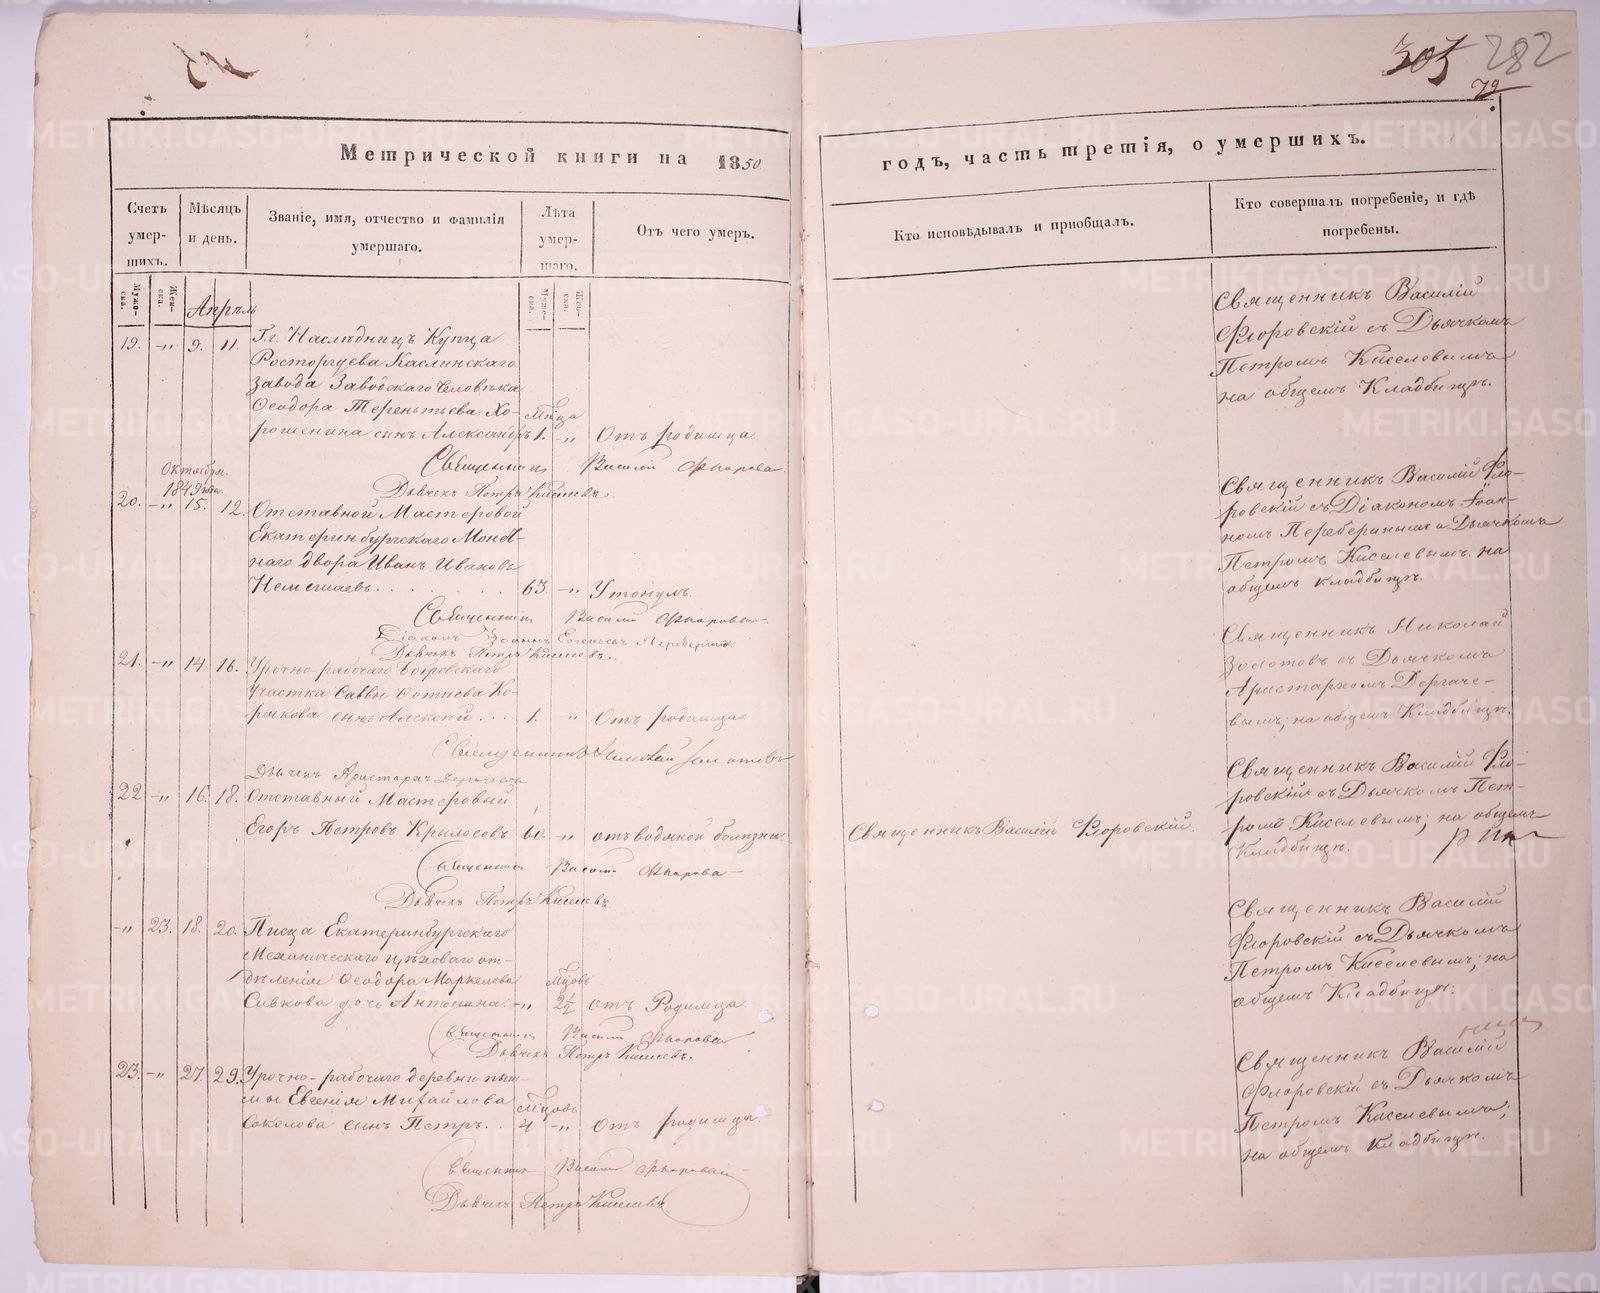 305 282
79
Метрической книги на 1850
годъ, часть третія, о умершихъ.
Счетъ умер-шихъ.
Мѣсяцъ и день.
Званіе, имя, отчество и фамилія умершаго.
Лѣта умер-шаго.
Отъ чего умеръ.
Кто исповѣдывалъ и приобщалъ.
Кто совершалъ погребеніе, и гдѣ погребены.
Муже-ска.
Жен-ска.
Муже-ска.
Жен-ска.
Апрѣль
19. -„ 9. 11. Г.г. Наслѣдницъ Купца
Расторгуева Каслинскаго
завода Заводскаго Человѣка
Ѳеодора Терентьева Хо-
рошенина сынъ Александръ
Мѣца
1. -„ Отъ родимца.
Священникъ Василій Флоровскій съ Дьячкомъ
Петромъ Киселевымъ
на общемъ Кладбищѣ.
Священникъ Василій Флоровск
Дьячекъ Петръ Киселевъ.
Октября
1849 года
20. -„ 15. 12. Отставной Мастеровой
Екатеринбургскаго Монет-
наго двора Иванъ Ивановъ
63. -„ Утонулъ.
Священникъ Василій Фло-
ровскій съ Діакономъ Іоан-
номъ Переберинымъ и Дьячкомъ
Петромъ Киселевымъ на
общемъ кладбищѣ.
Священникъ Василій Флоровск
Дьячекъ Петръ Киселевъ.
21. -„ 14. 16. Урочно-рабочаго Бобровскаго
участка Саввы Фотіева Ко-
рякова сынъ Алексѣй . . .
1. „ Отъ родимца
Священникъ Николай
Золотовъ съ Дьячкомъ
Аристархомъ Дергаче-
вымъ; на общемъ Кладбищѣ.
Священникъ Николай Золотовъ
Дьячекъ Аристархъ Дергачевъ
22 -„ 16. 18. Отставный Мастеровый
Егоръ Петровъ Крылосовъ 60. „ отъ водяной болѣзни.
Священникъ Василій Флоровскій.
Священникъ Василій Фло-
ровскій съ Дьячкомъ Пет-
ромъ Киселевымъ; на общемъ
Кладбищѣ.
Священникъ Василій Флоровск
Дьячекъ Петръ Киселевъ.
-„ 23. 18. 20. Писца Екатеринбургскаго
Механическаго цѣховаго от-
дѣленія Ѳеодора Маркелова
Сивкова дочь Антонина.
Мцовъ
-„ 2½ отъ Родимца.
Священникъ Василій
Флоровскій съ Дьячкомъ
Петромъ Киселевымъ; на
общемъ Кладбищѣ.
Священникъ Василій Флоровск
Дьячекъ Петръ Киселевъ.
23. -„ 27. 29. Урочно-рабочаго деревни Пыш-
мы Евгенія Михайлова
Соколова сынъ Петръ.
Мцовъ
4 -„ Отъ родимца.
Священникъ Василій
Флоровскій съ Дьячкомъ
Петромъ Киселевымъ;
на общемъ Кладбищѣ.
Священникъ Василій Флоровскій
Дьячекъ Петръ Киселевъ
METRIKI.GASO-URAL.RU